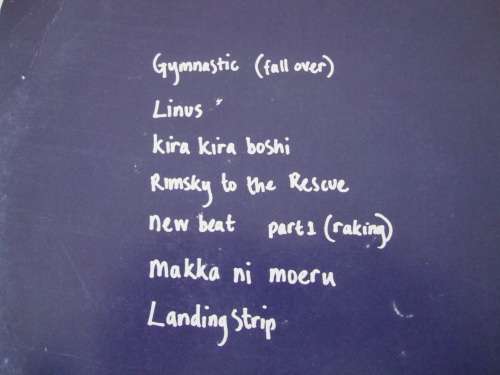 Gymnastic (fall over)
Linus
kira kira boshi
Rimsky to the Rescue
new beat part 1 (raking)
makka ni moeru
Landing strip